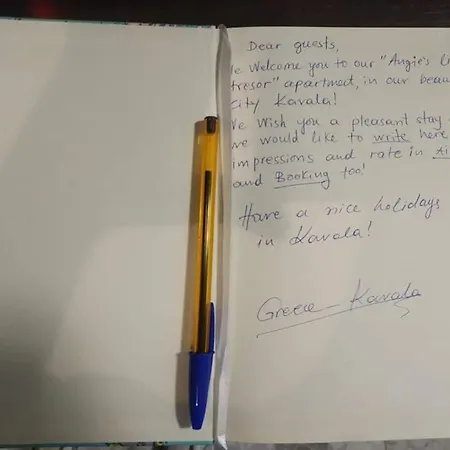 Dear guests,
We Welcome you to our "Angie's
tresor" apartment, in our
city Kavala!
We Wish you a pleasant stay
we would like to write here
impressions and rate in
and Booking too!
Have a nice holidays
in Kavala!
Greece - Kavala